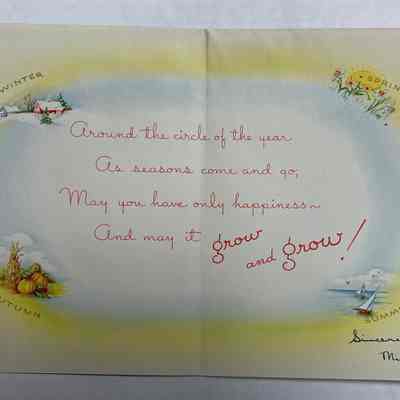 WINTER
SPRIN
Around the circle of the year
As seasons come and go,
May you have only happiness~
And may it grow and grow!
AUTUMN
SUMM
Sincere